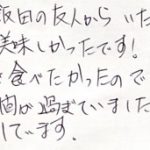 飯田の友人から いた
美味しかったです!
き食べたかったので
間が過ぎていました
しています.